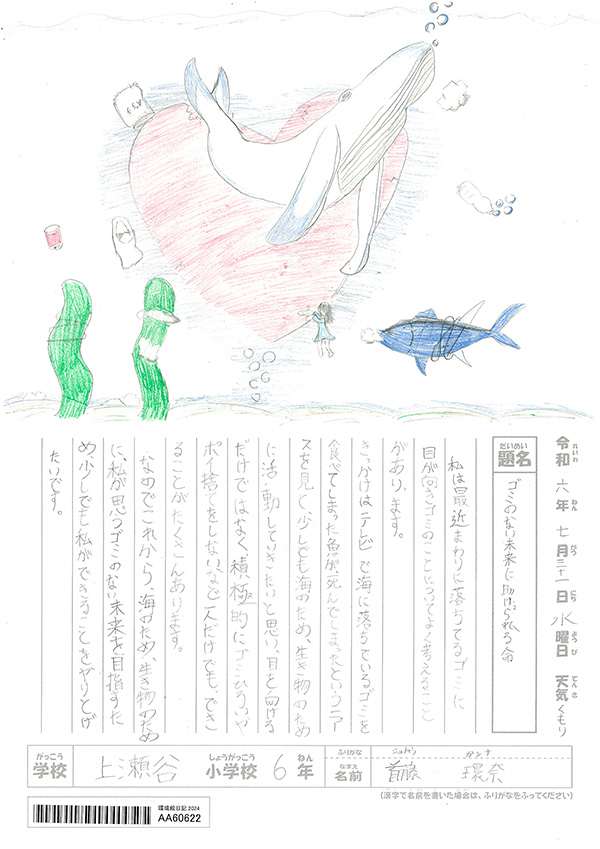 令和 六年 七月 三十一日 水曜日 天気 くもり
れいわ ねん がつ にち ようび てんき
題名 ゴミのない未来に助けられる命
だいめい
私は最近まわりに落ちてるゴミに
目が向きゴミのことについてよく考えること
があります。
きっかけはテレビで海に落ちている。ゴミを
食べてしまった魚が死んでしまったというニュー
スを見て、少しでも海のため、生き物のため
に活動していきたいと思い、目を向ける
だけではなく、積極的にゴミひろいや
ポイ捨てをしないなど一人だけでも、でき
ることがたくさんあります。
なのでこれから、海のため、生き物のため
に、私が思うゴミのない未来を目指すた
め、少しでも私ができることをやりとげ
たいです。
がっこう しょうがっこう ねん ふりがな しゅとう かんな
学校 上瀬谷 小学校 6年 名前 首藤 環奈
なまえ
(漢字で名前を書いた場合は、ふりがなをふってください)
環境絵日記 2024
AA60622